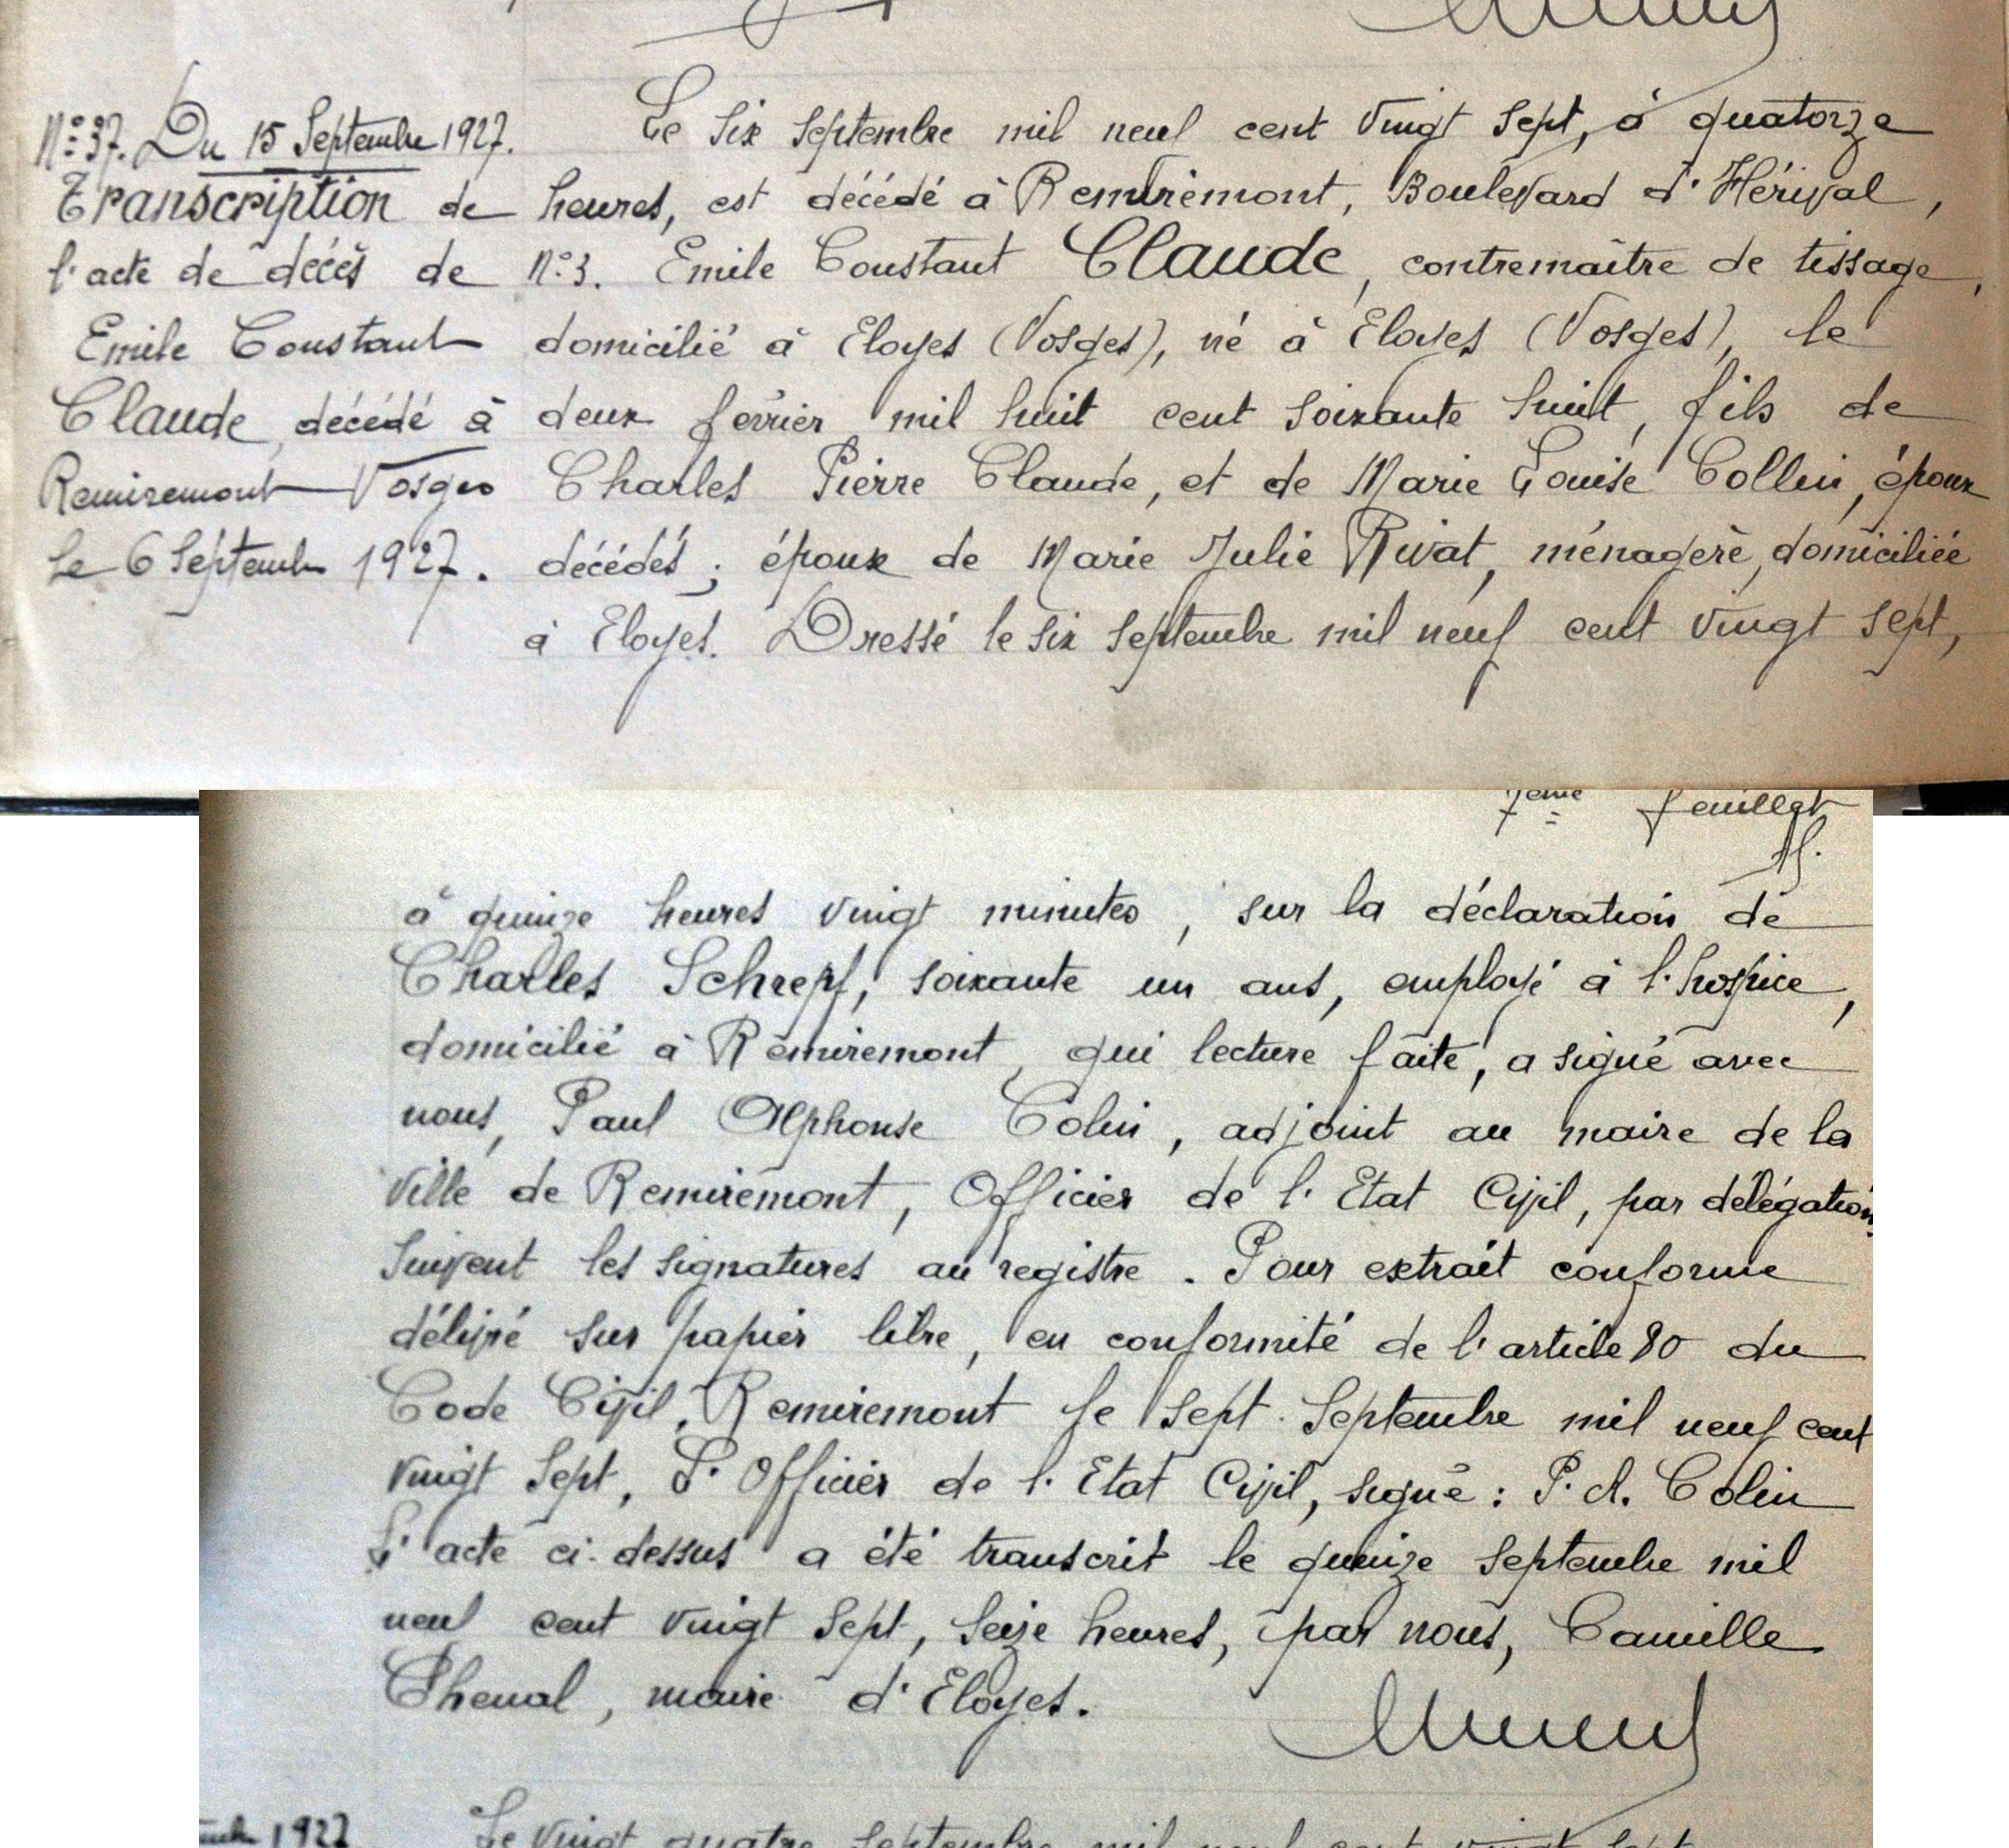 N° 37. Du 15 Septembre 1927.
Transcription de
l'acte de décès de
Emile Constant
Claude, décédé à
Remiremont Vosges
le 6 Septembre 1927.
Le six septembre mil neuf cent vingt sept, à quatorze
heures, est décédé à Remiremont, Boulevard d'Hérival,
N° 3. Emile Constant Claude, contremaître de tissage,
domicilié à Eloyes (Vosges), né à Eloyes (Vosges), le
deux février mil huit cent soixante huit, fils de
Charles Pierre Claude, et de Marie Louise Collin, époux
décédés ; époux de Marie Julie Rivat, ménagère, domiciliée
à Eloyes. Dressé le six septembre mil neuf cent vingt sept,
7ème feuillet
à quinze heures vingt minutes, sur la déclaration de
Charles Schrepf, soixante un ans, employé à l'hospice,
domicilié à Remiremont, qui lecture faite, a signé avec
nous, Paul Alphonse Colin, adjoint au maire de la
ville de Remiremont, Officier de l'Etat Civil, par délégation,
Suivent les signatures au registre. Pour extrait conforme
délivré sur papier libre, en conformité de l'article 80 du
Code Civil, Remiremont le sept Septembre mil neuf cent
vingt sept, L'Officier de l'Etat Civil, signé : P. A. Colin
L'acte ci-dessus a été transcrit le quinze septembre mil
neuf cent vingt sept, seize heures, par nous, Camille
Pheual, maire d'Eloyes.
1927
Le vingt quatre septembre mil neuf cent vingt sept